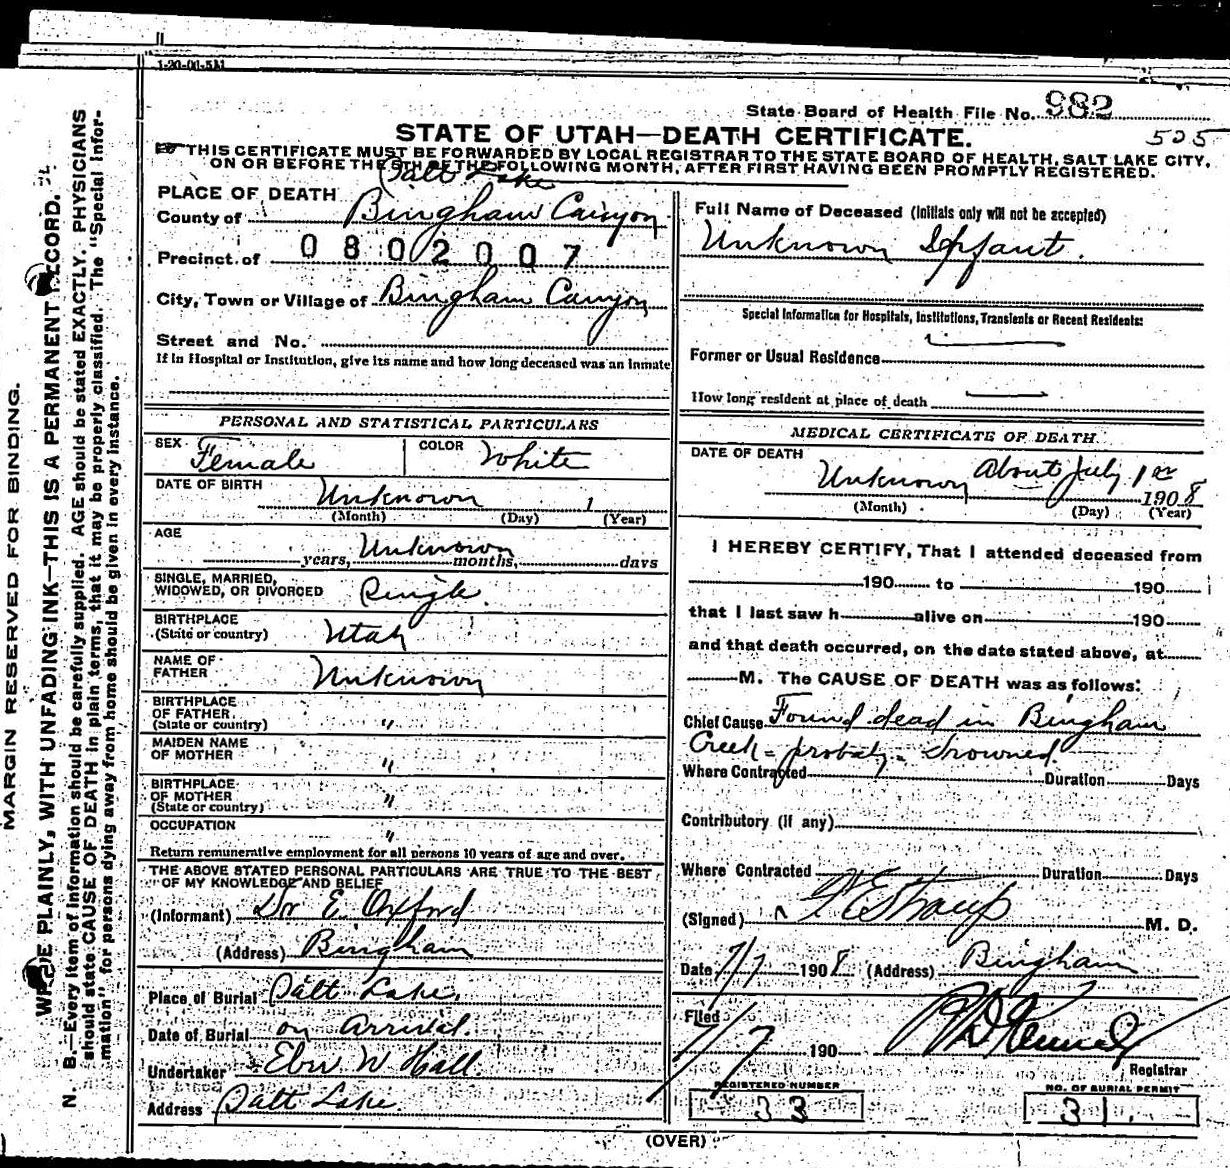 1-20-00-5M
State Board of Health File No. 982
STATE OF UTAH—DEATH CERTIFICATE.
525
THIS CERTIFICATE MUST BE FORWARDED BY LOCAL REGISTRAR TO THE STATE BOARD OF HEALTH, SALT LAKE CITY,
ON OR BEFORE THE 5TH OF THE FOLLOWING MONTH, AFTER FIRST HAVING BEEN PROMPTLY REGISTERED.
MARGIN RESERVED FOR BINDING.
WRITE PLAINLY, WITH UNFADING INK—THIS IS A PERMANENT RECORD.
N. B.—Every item of information should be carefully supplied. AGE should be stated EXACTLY. PHYSICIANS
should state CAUSE OF DEATH in plain terms, that it may be properly classified. The "Special Infor-
mation" for persons dying away from home should be given in every instance.
PLACE OF DEATH
Salt Lake
County of Bingham Canyon
Precinct of 0802007
City, Town or Village of Bingham Canyon
Street and No.
If in Hospital or Institution, give its name and how long deceased was an inmate
PERSONAL AND STATISTICAL PARTICULARS
SEX Female COLOR White
DATE OF BIRTH Unknown 1
(Month) (Day) (Year)
AGE
Unknown
years, months, days
SINGLE, MARRIED,
WIDOWED, OR DIVORCED Single.
BIRTHPLACE
(State or country) Utah
NAME OF
FATHER Unknown
BIRTHPLACE
OF FATHER
(State or country) "
MAIDEN NAME
OF MOTHER "
BIRTHPLACE
OF MOTHER
(State or country) "
OCCUPATION "
Return remunerative employment for all persons 10 years of age and over.
THE ABOVE STATED PERSONAL PARTICULARS ARE TRUE TO THE BEST
OF MY KNOWLEDGE AND BELIEF
(Informant) Dr E. Oxford
(Address) Bingham
Place of Burial Salt Lake.
Date of Burial on Arrival.
Undertaker Eber W Hall.
Address Salt Lake.
Full Name of Deceased (Initials only will not be accepted)
Unknown Infant.
Special Information for Hospitals, Institutions, Transients or Recent Residents:
Former or Usual Residence
How long resident at place of death
MEDICAL CERTIFICATE OF DEATH
DATE OF DEATH
Unknown About July 1st 1908
(Month) (Day) (Year)
I HEREBY CERTIFY, That I attended deceased from
190 to 190
that I last saw h alive on 190
and that death occurred, on the date stated above, at
M. The CAUSE OF DEATH was as follows:
Chief Cause Found dead in Bingham
Creek - probaly - drowned.
Where Contracted Duration Days
Contributory (if any)
Where Contracted Duration Days
(Signed) F E Straup M. D.
Date 7/7 1908 (Address) Bingham
Filed
7/7 190
Registrar
REGISTERED NUMBER
33
NO. OF BURIAL PERMIT
31.
(OVER)